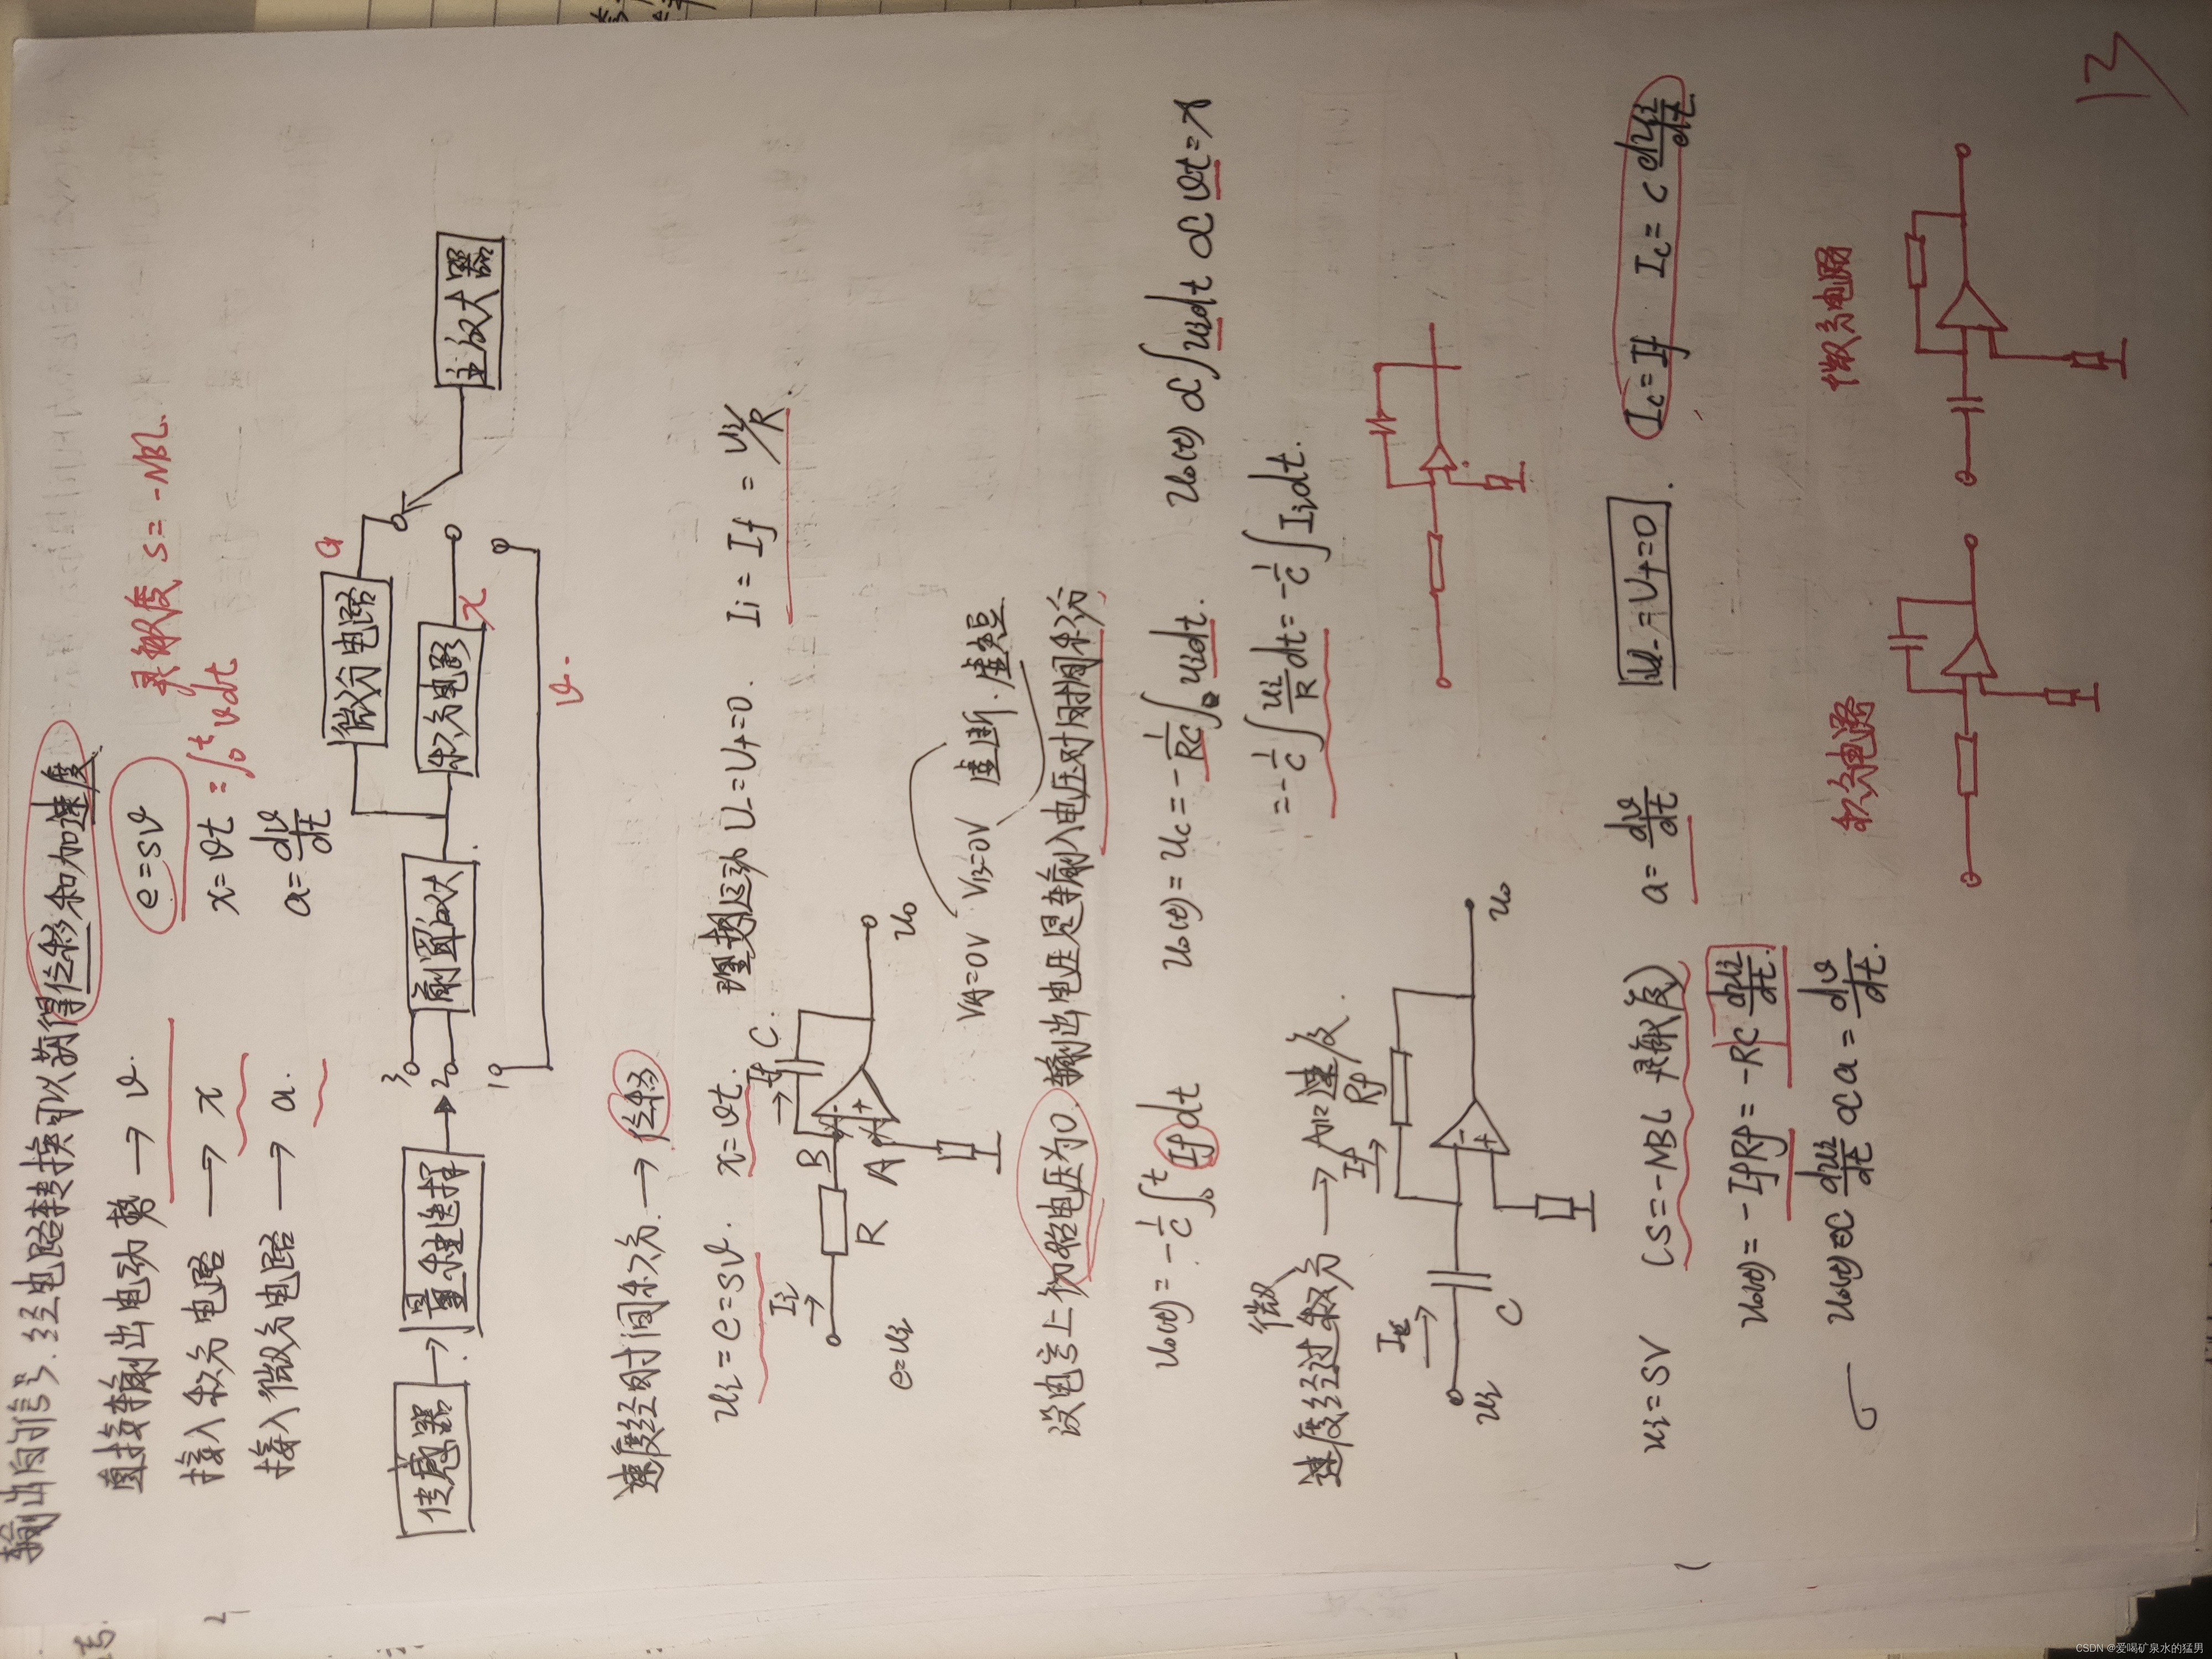 输出的信号.经电路转换可以获得位移和加速度
直接输出电动势 → v. e=sv 灵敏度 s=-NBL
接入积分电路 → x x=vt =∫₀ᵗvdt
接入微分电路 → a. a=dv/dt
传感器 → 量程选择
3 2 1
前置放大
微分电路 a
积分电路 x
v.
主放大器
速度经时间积分. → 位移
ui=e=sv. x=vt. 理想运动 U-=U+=0. Ii=If=ui/R.
Ii R B A If C. - + uo
e=ui
VA=0V VB=0V 虚断.虚短
设电容上初始电压为0.输出电压是输入电压对时间积分
uo(t)=-1/C∫₀ᵗIfdt uo(t)=uc=-1/RC∫₀uidt. uo(t)∝∫uidt∝vt=x
=-1/C∫ui/Rdt=-1/C∫Iidt.
微
速度经过积分 → 加速度.
ui C If Rf - + uo
ui=SV (S=-NBL 灵敏度) a=dv/dt U-=U+=0. Ic=If Ic=C dui/dt
uo(t)=-IfRf=-RC dui/dt.
uo(t)∝dui/dt∝a=dv/dt.
积分电路 微分电路
13
CSDN @爱喝矿泉水的猛男